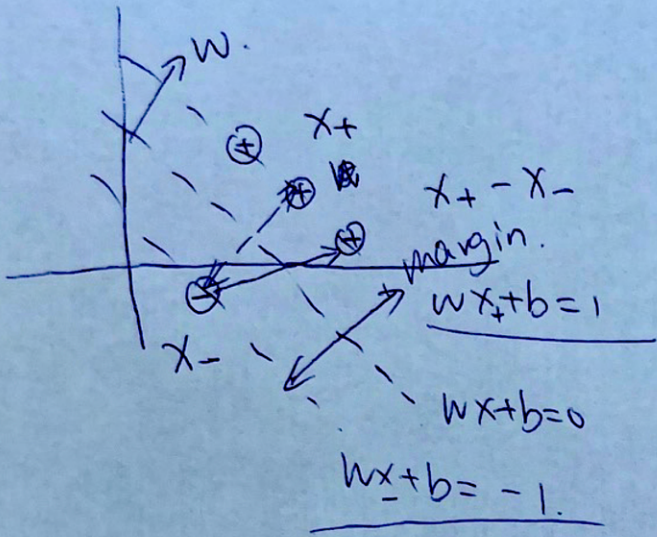 W.
+
X+
+
X+ - X-
+
margin.
-
WX++b=1
X-
WX+b=0
WX-+b= -1.